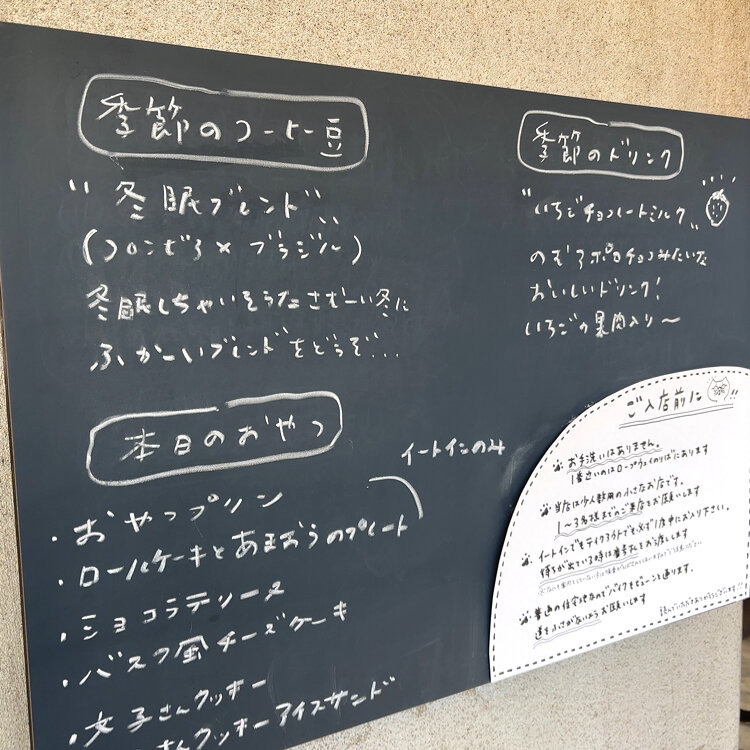 季節のコーヒー豆
"冬眠ブレンド"
(コロンビア×ブラジル)
冬眠しちゃいそうなさむーい冬に
ふかーいブレンドをどうぞ...
本日のおやつ
イートインのみ
・おやつプリン
・ロールケーキとあまおうのプレート
・ショコラテリーヌ
・バスク風チーズケーキ
・女子さんクッキー
さんクッキーアイスサンド
季節のドリンク
"いちごチョコレートミルク"
のむアポロチョコみたいな
おいしいドリンク!
いちごの果肉入り〜
ご入店前に!!
お手洗いはありません。
1番近いのはロープウェイのりばにあります
当店は少人数用の小さなお店です。
1〜3名様までのご来店をお願いします
イートインでもテイクアウトでも必ず1度中にお入り下さい。
待ちが出ている時は番号札をお渡しします
普通の住宅地なのでバイクもビューンと通ります。
道をふさがないようお願いします